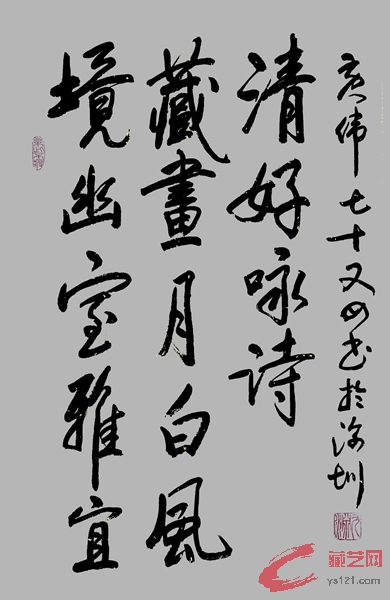 境幽室雅宜
藏畫月白風
清好咏诗
七十又四书於深圳
藏艺网
ys121.com